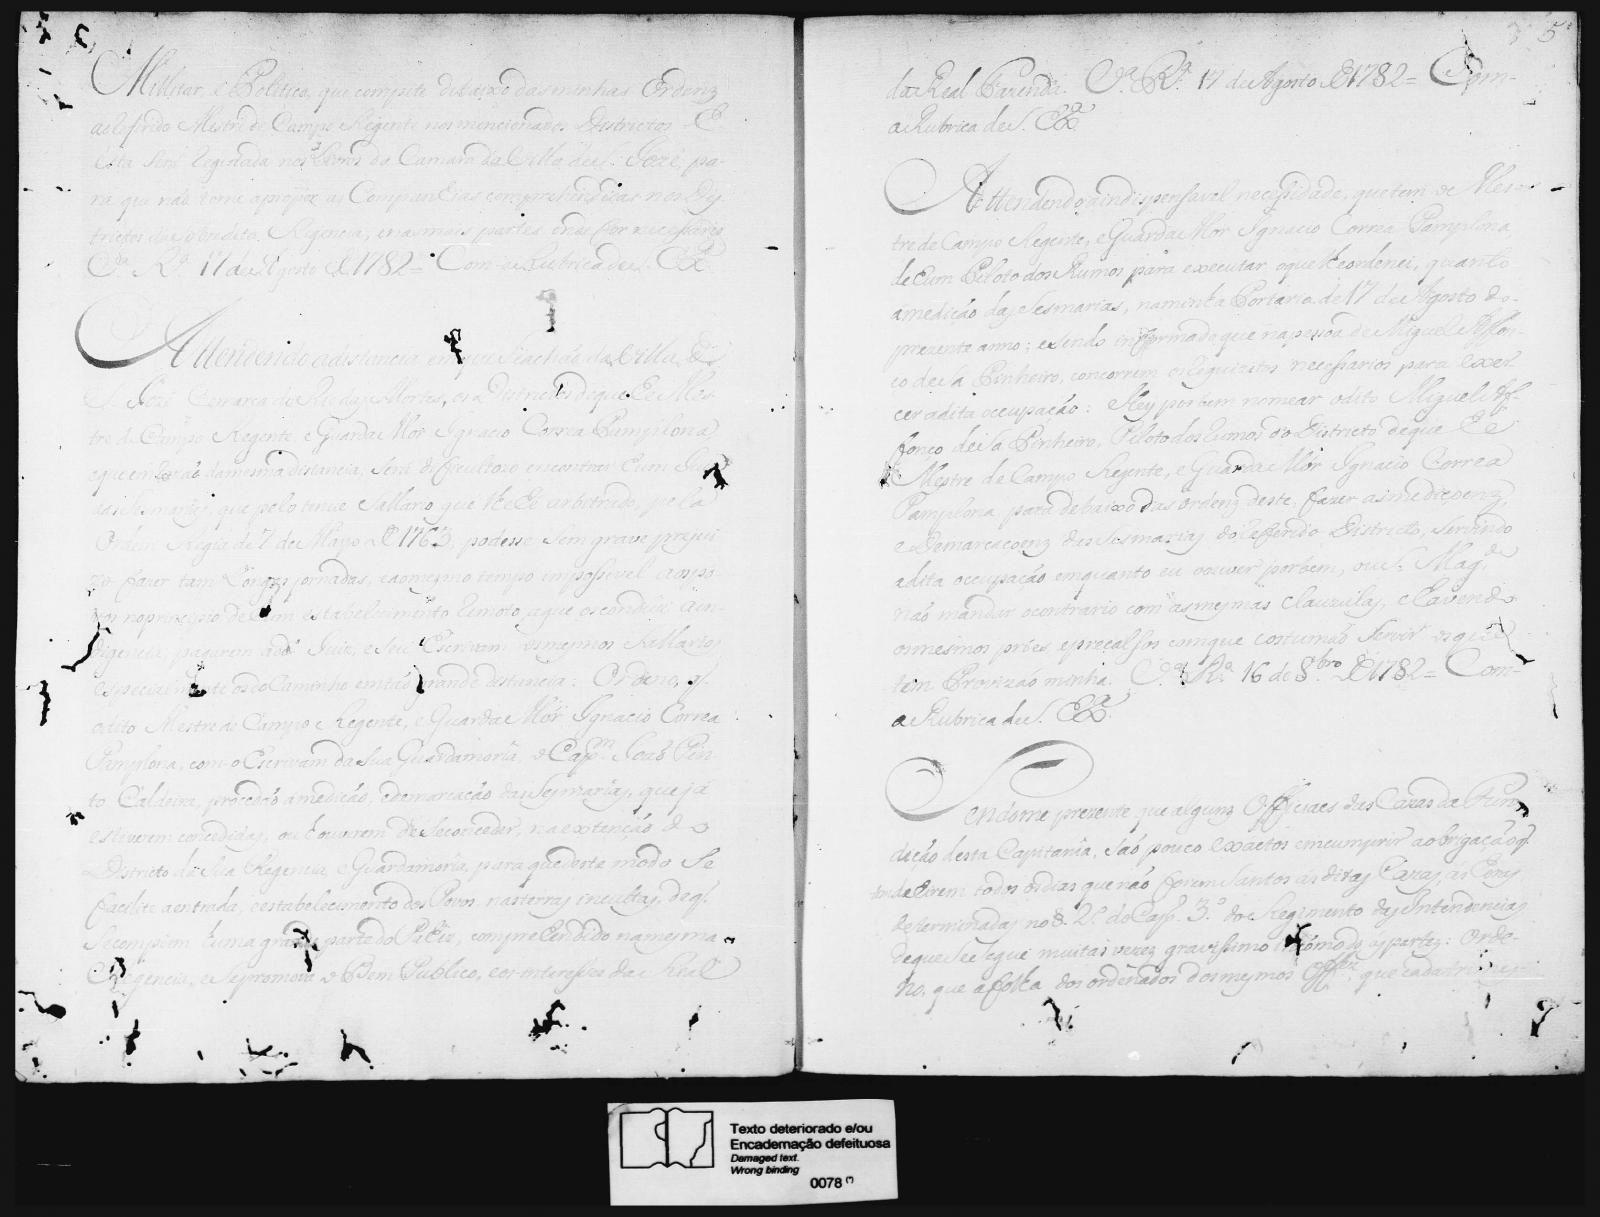 Militar, e Politico, que compete debaixo das minhas Ordenz
ao referido Mestre de Campo Regente nos mencionados Districtos = E
esta será Registada nos Livros da Camara da Villa de S. Jozé, pa-
ra que não torne a propôr as Companhias comprehendidas nos Dis-
trictos da sobredita Regencia, e nas mais partes onde for necessario
Cª. Rª. 17 de Agosto de 1782 = Com a Rubrica de S. Exª
Attendendo a distancia em que se achão da Villa de
S. Jozé Comarca do Rio das Mortes, os Districtos de que he Mes-
tre de Campo Regente, e Guarda Mór Ignacio Correa Pamplona
e que em razão da mesma distancia, será dificultozo encontrar hum Juiz
das Sesmarias, que pelo tenue Sallario que lhe he arbitrado, pela
Ordem Regia de 7 de Mayo de 1763, podesse sem grave prejui
zo fazer tam Longas jornadas, e ao mesmo tempo impossivel aos po-
vos no principio de hum estabelecimento Remoto, a que os conduz a in-
digencia, pagarem ao dº Juiz, e seu Escrivam os mesmos Sallarios
especialmente os do Caminho em tão grande distancia: Ordeno, q.
o dito Mestre de Campo Regente, e Guarda Mór Ignacio Correa
Pamplona, com o Escrivam da sua Guardamoria, o Capᵐ João Pin-
to Caldeira, procedão á medição, e demarcação das Sesmarias, que já
estiverem concedidas, ou houverem de se conceder, na extenção do
Districto da sua Regencia, e Guardamoria, para que deste modo se
facilite a entrada, e estabelecimento dos Povos, nas terras incultas, de q.
se compoem huma grande parte do Paiz, comprehendido na mesma
Regencia, e se promova o Bem Publico, e os interesses da Real
5
da Real Fazenda. Cª. Rª. 17 de Agosto de 1782 = Com-
a Rubrica de S. Exª.
Attendendo a indispensavel necessidade, que tem o Mes-
tre de Campo Regente, e Guarda Mór Ignacio Correa Pamplona
de hum Piloto dos Rumos para executar o que lhe ordenei, quanto
á medição das Sesmarias, na minha Portaria de 17 de Agosto do
prezente anno; e sendo informado que na pessoa de Miguel Affon-
ço de Sa Pinheiro, concorrem os Requizitos necessarios para exer-
cer a dita occupação: Hey por bem nomear o dito Miguel Af-
fonço de Sa Pinheiro, Piloto dos Rumos do Districto de que he
Mestre de Campo Regente, e Guarda Mór Ignacio Correa
Pamplona, para debaixo das ordenz deste, fazer as mediçoenz,
e Demarcaçoenz das Sesmarias do Referido Districto, servindo
a dita occupação emquanto eu ouver por bem, ou S. Magᵉ
não mandar o contrario com as mesmas clauzulas, e havendo
os mesmos próes, e precalsos com que costumão servir os que
tem Provizão minha. Cª. Rª. 16 de 8bro de 1782 = Com-
a Rubrica de S. Exª.
Sendome prezente, que algunz Officiaes das Cazas da Fun
dição desta Capitania, são pouco exactos em cumprir a obrigação q.
tem de hirem todos os dias que não forem Santos as ditas Cazas, ás horas
determinadas no §. 2º do Cap. 3º. do Regimento das Intendencias
de que se segue muitas vezes gravissimo incómodo as partes: Orde-
no, que a folha dos ordenados dos mesmos Offes que cada tres mes-
Texto deteriorado e/ou
Encadernação defeituosa
Damaged text.
Wrong binding
0078 (*)